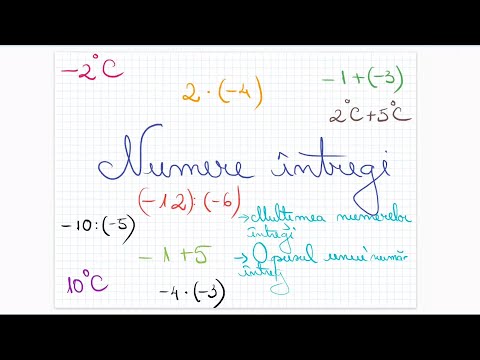 -2°C
2 · (-4)
-1+(-3)
2°C+5°C
Numere întregi
(-12):(-6)
→Mulțimea numerelor
întregi
-10:(-5)
-1+5
→Opusul unui număr
întreg
10°C
-4·(-3)